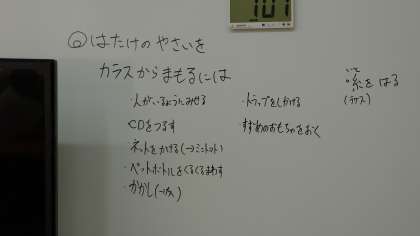 ◎はたけのやさいを
カラスからまもるには
・人がいるようにみせる
CDをつるす
ネットをかける(→ミニトマト)
・ペットボトルをくるくるまわす
・かかし
・トラップをしかける
すずめのおもちゃをおく
いと
・糸をはる
107